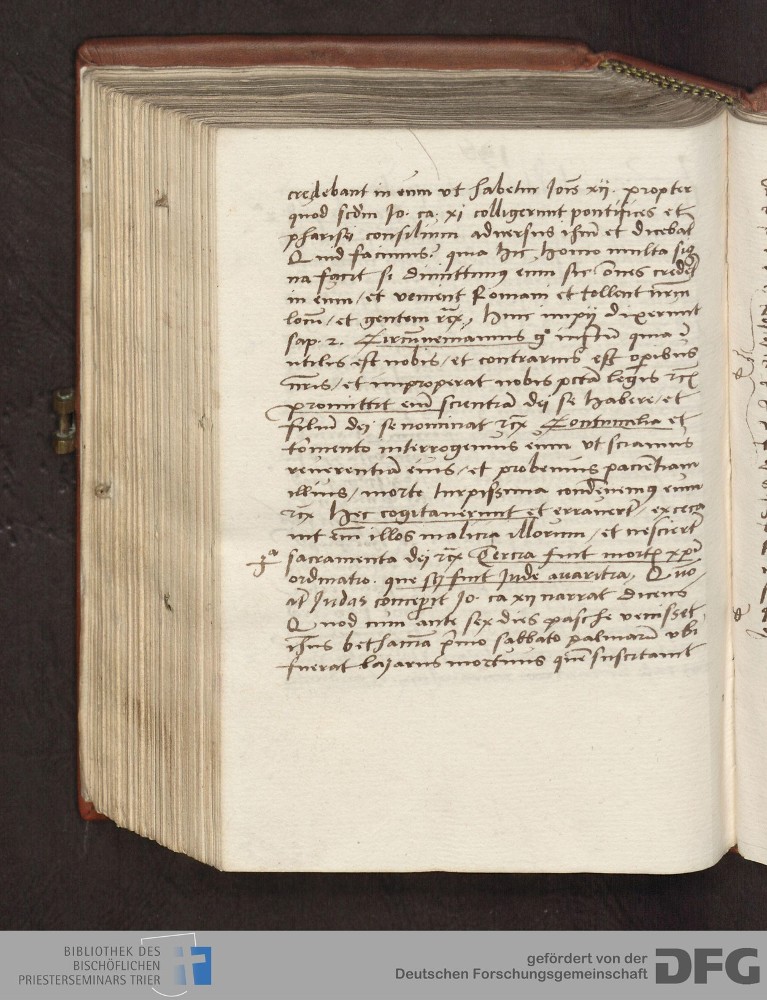 credebant in eum vt habetur Joīs xij. propter
quod scdm Jo. ca. xj colligerunt pontifices et
pharisei consilium aduersus ihm et dicebāt
Quid facimus? quia hic homo multa sig
na facit si dimittimus eum sic oēs credēt
in eum / et venient Romani et tollent nrm
locū / et gentem rcx, Hinc impij dixerunt
sap. 2. Circūueniamus gͦ iustū quia ī
utilis est nobis / et contrarius est opibus
nris / et improperat nobis pctā legis rc
promittit eī scientiā dei se habere / et
filiū dei se nominat rcx Contumelia et
tormento interrogemus eum vt sciamus
reuerentiā eius / et probemus pacientiam
illius / morte turpissima condēnemus eum
rcx Hec cogitauerunt et errauert / exceca
uit eī illos malicia illorum / et nescierūt
3ª sacramenta dei rcx Tercia fuit mortis xpi
ordinatio. que fuit Jude auaritia, Quō
aūt Judas concepit Jo. ca xij narrat dicens
Quod cum ante sex dies pasche venisset
ihus bethaniā pmo sabbato palmarū vbi
fuerat lazarus mortuus quē suscitauit
BIBLIOTHEK DES
BISCHÖFLICHEN
PRIESTERSEMINARS TRIER
gefördert von der
Deutschen Forschungsgemeinschaft
DFG